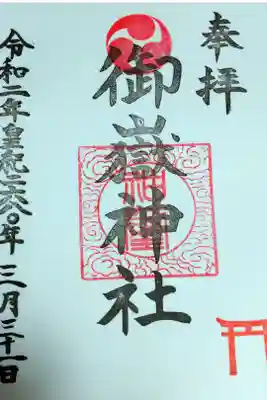 奉拝
御嶽神社
令和二年皇紀二六八〇年 三月二十一日